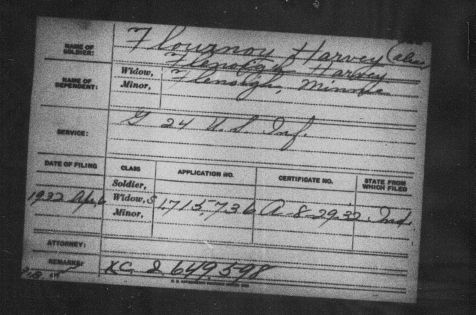 NAME OF SOLDIER: Flournoy Harvey (alias
Flenoigh Harvey
NAME OF DEPENDENT: Widow, Flenoigh, Minnie
Minor,
SERVICE: G 24 U.S. Inf.
DATE OF FILING CLASS APPLICATION NO. CERTIFICATE NO. STATE FROM WHICH FILED
Soldier,
1932 Apr 6 Widow, 1713,736 A-8-29-32 Ind.
Minor,
ATTORNEY:
REMARKS: XC 2 649,598